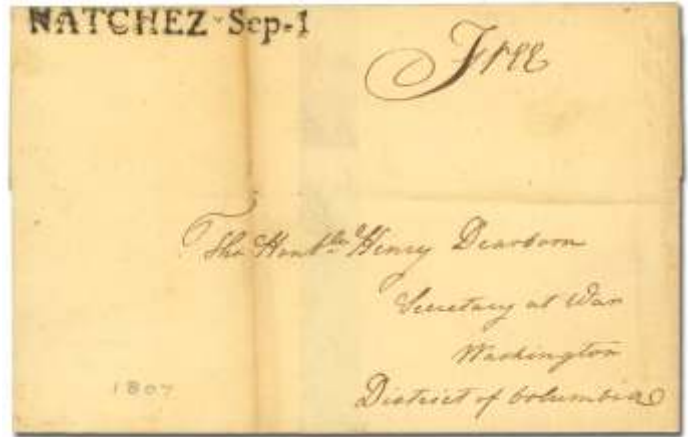 NATCHEZ Sep-1
Free
The Honble Henry Dearborn
Secretary at War
Washington
District of Columbia
1807